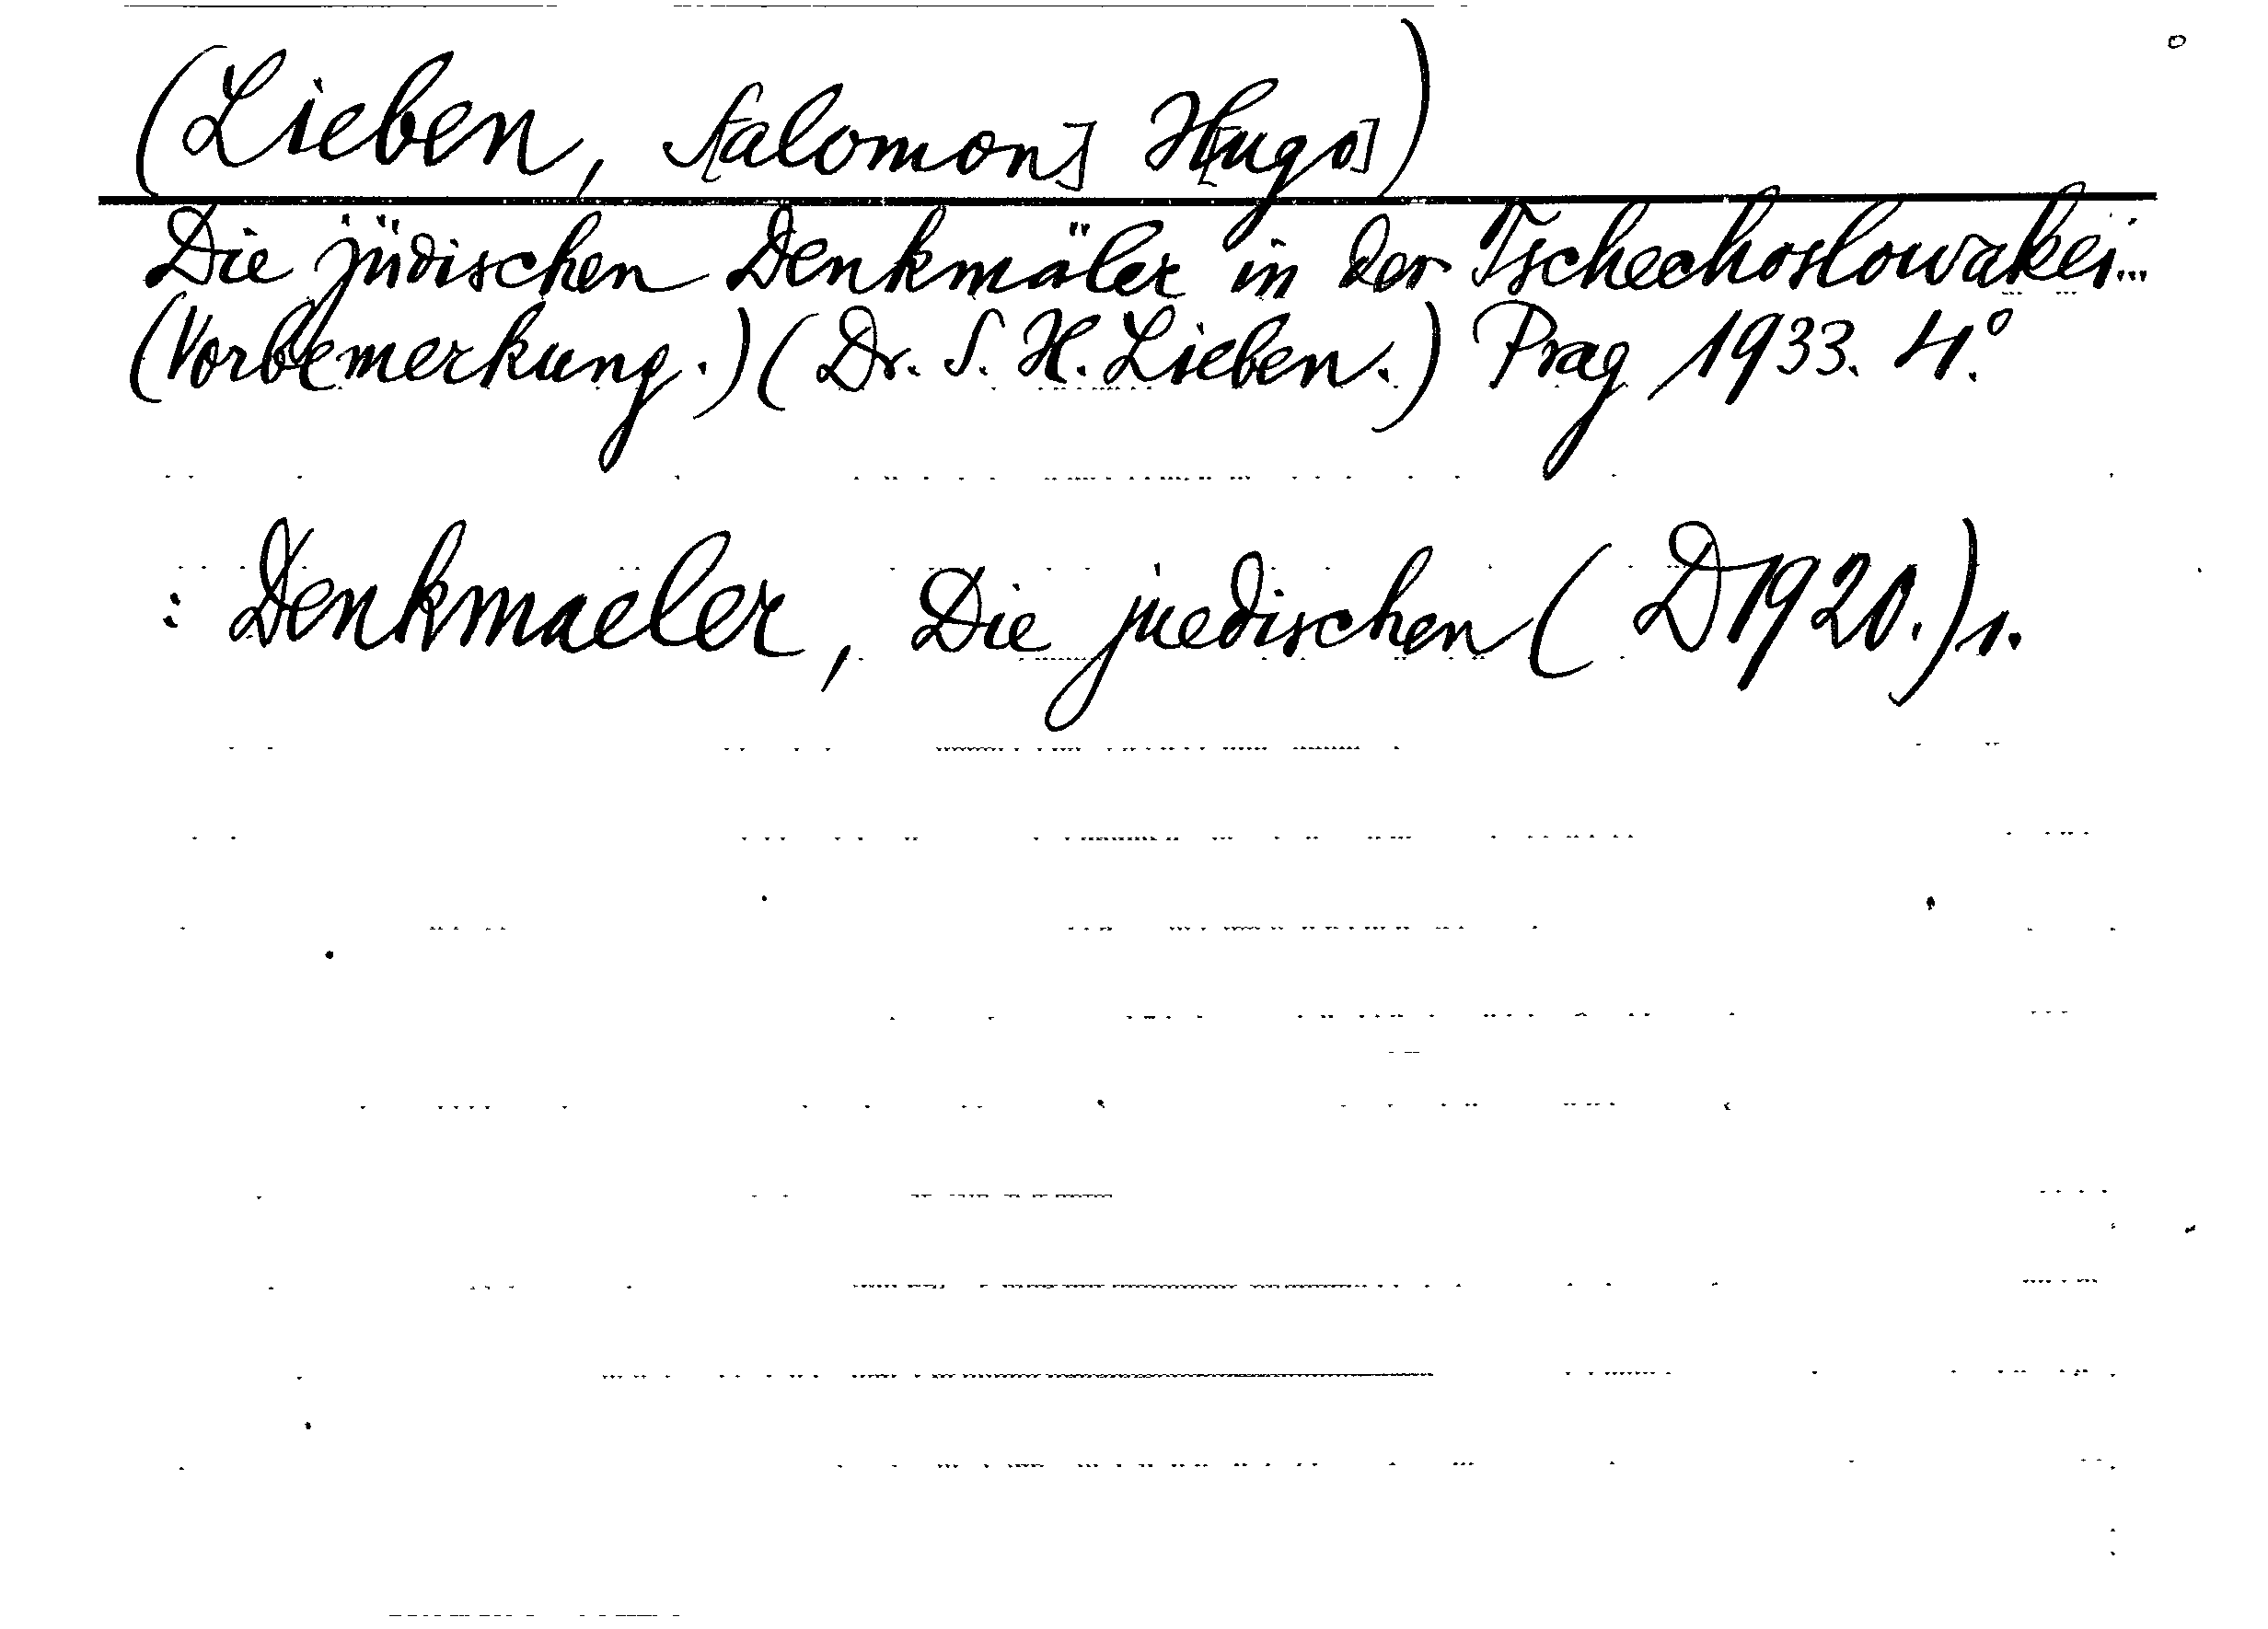 (Lieben, S[alomon] H[ugo])
Die jüdischen Denkmäler in der Tschechoslowakei...
(Vorbemerkung.) (Dr. S. H. Lieben.) Prag 1933. 4.°
: Denkmaeler, Die juedischen (D1920.) s.